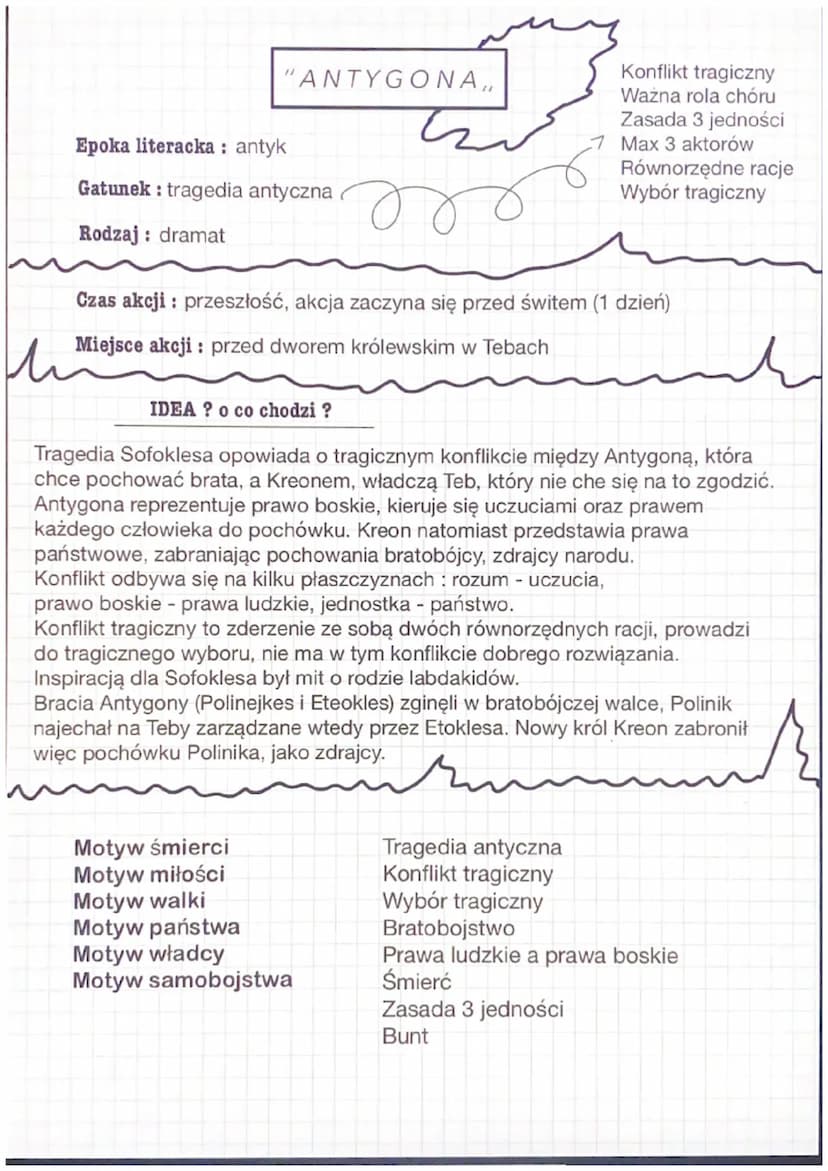 "ANTYGONA„
Konflikt tragiczny
Ważna rola chóru
Zasada 3 jedności
Max 3 aktorów
Równorzędne racje
Wybór tragiczny
Epoka literacka : antyk
Gatunek : tragedia antyczna
Rodzaj : dramat
Czas akcji : przeszłość, akcja zaczyna się przed świtem (1 dzień)
Miejsce akcji : przed dworem królewskim w Tebach
IDEA ? o co chodzi ?
Tragedia Sofoklesa opowiada o tragicznym konflikcie między Antygoną, która
chce pochować brata, a Kreonem, władczą Teb, który nie che się na to zgodzić.
Antygona reprezentuje prawo boskie, kieruje się uczuciami oraz prawem
każdego człowieka do pochówku. Kreon natomiast przedstawia prawa
państwowe, zabraniając pochowania bratobójcy, zdrajcy narodu.
Konflikt odbywa się na kilku płaszczyznach : rozum - uczucia,
prawo boskie - prawa ludzkie, jednostka - państwo.
Konflikt tragiczny to zderzenie ze sobą dwóch równorzędnych racji, prowadzi
do tragicznego wyboru, nie ma w tym konflikcie dobrego rozwiązania.
Inspiracją dla Sofoklesa był mit o rodzie labdakidów.
Bracia Antygony (Polinejkes i Eteokles) zginęli w bratobójczej walce, Polinik
najechał na Teby zarządzane wtedy przez Etoklesa. Nowy król Kreon zabronił
więc pochówku Polinika, jako zdrajcy.
Motyw śmierci
Motyw miłości
Motyw walki
Motyw państwa
Motyw władcy
Motyw samobojstwa
Tragedia antyczna
Konflikt tragiczny
Wybór tragiczny
Bratobojstwo
Prawa ludzkie a prawa boskie
Śmierć
Zasada 3 jedności
Bunt